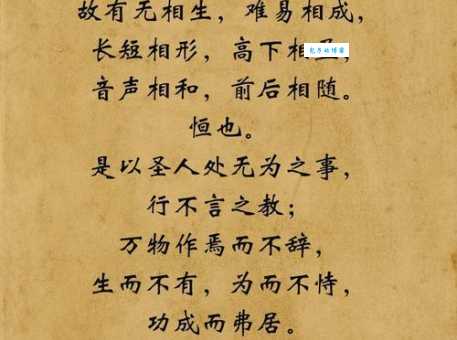 故有无相生，难易相成，
长短相形，高下相
音声相和，前后相随。
恒也。
是以圣人处无为之事，
行不言之教；
万物作焉而不辞，
生而不有，为而不恃，
功成而弗居。